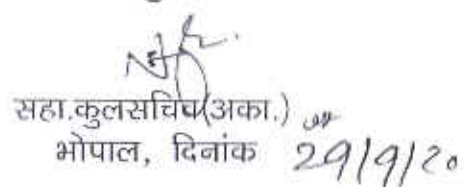 सहा.कुलसचिव(अका.)
भोपाल, दिनांक 29/9/20